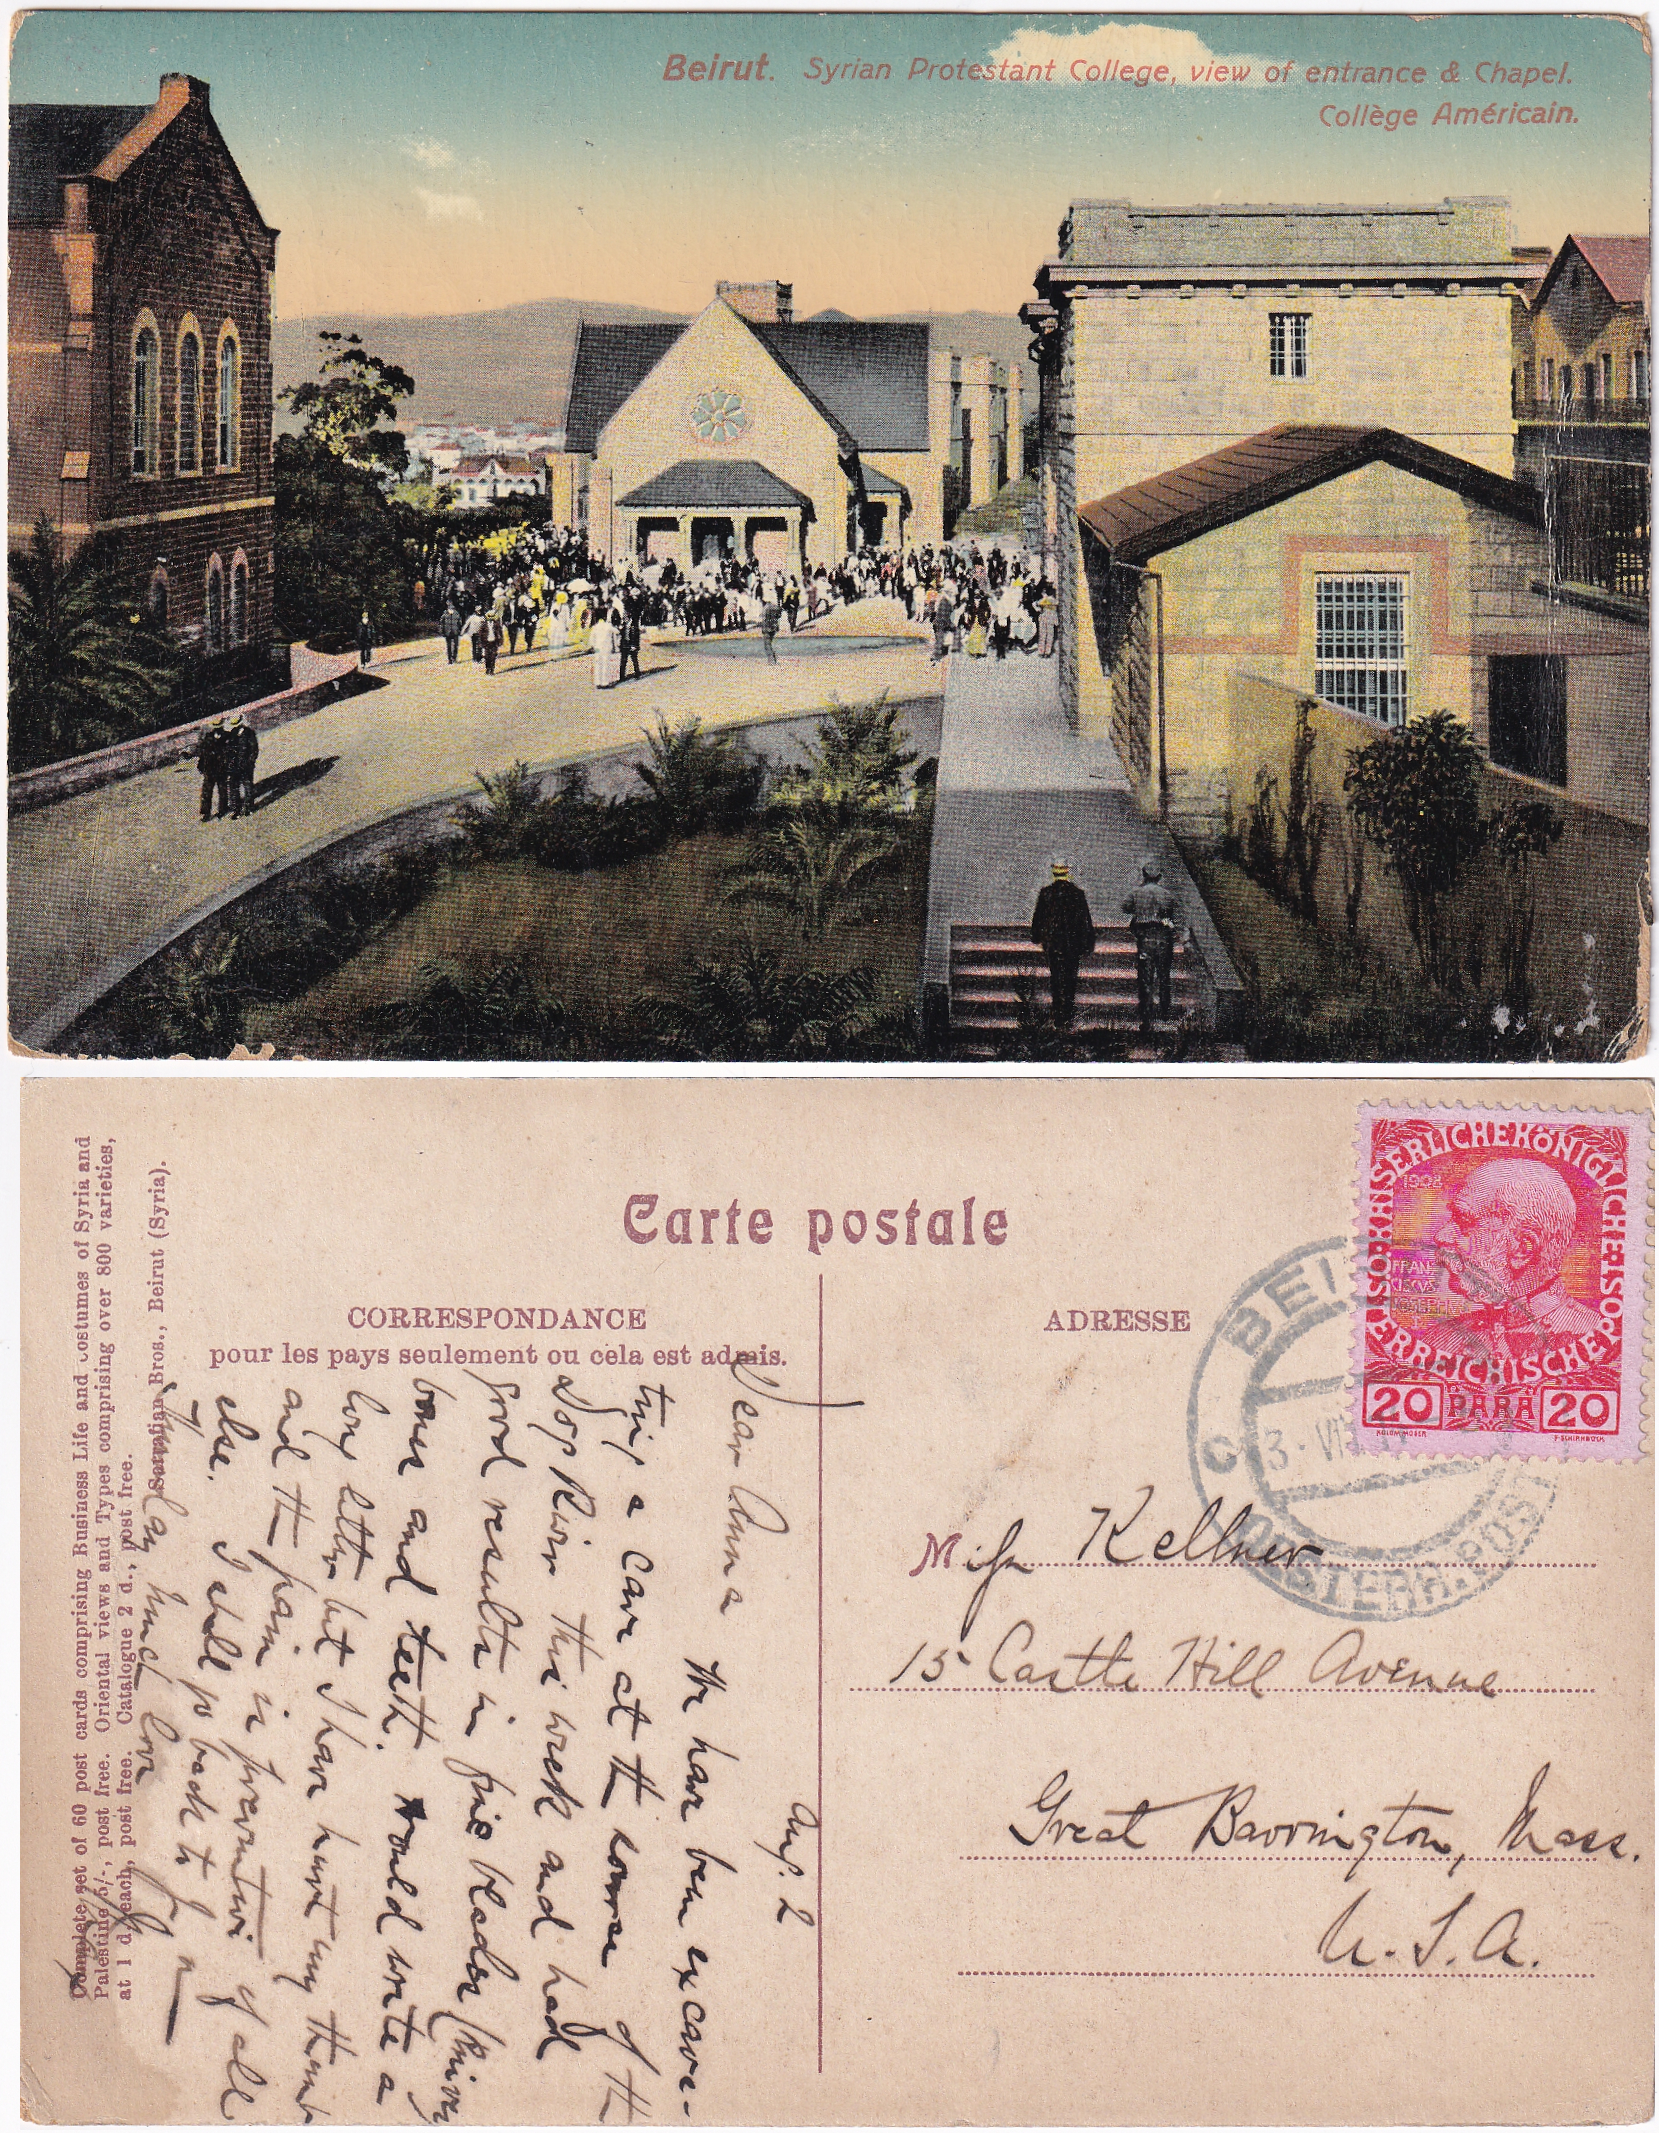 Beirut. Syrian Protestant College, view of entrance & Chapel.
Collège Américain.
Complete set of 60 post cards comprising Business Life and costumes of Syria and
Palestine 5/-, post free. Oriental views and Types comprising over 800 varieties,
at 1 d. each, post free. Catalogue 2 d., post free.
Sarrafian Bros., Beirut (Syria).
Carte postale
CORRESPONDANCE
pour les pays seulement ou cela est admis.
ADRESSE
Aug. 2
Dear Anna
We have been excava-
ting a cave at the source of the
Dog River this week and had
good results in fine blades (knives)
bones and teeth. Would write a
long letter but I have hurt my thumb
and the pain is preventive of all
else. I shall go back to
much love
KAISERLICHEKÖNIGLICHE ÖSTERREICHISCHE
1908
FRAN
CISCVS
IOSEPH
20 PARA 20
KOLOM.MOSER F.SCHIRNBÖCK
BEI
3. VI
OESTERR. POST
Miss Kellner
15 Castle Hill Avenue
Great Barrington, Mass.
U.S.A.